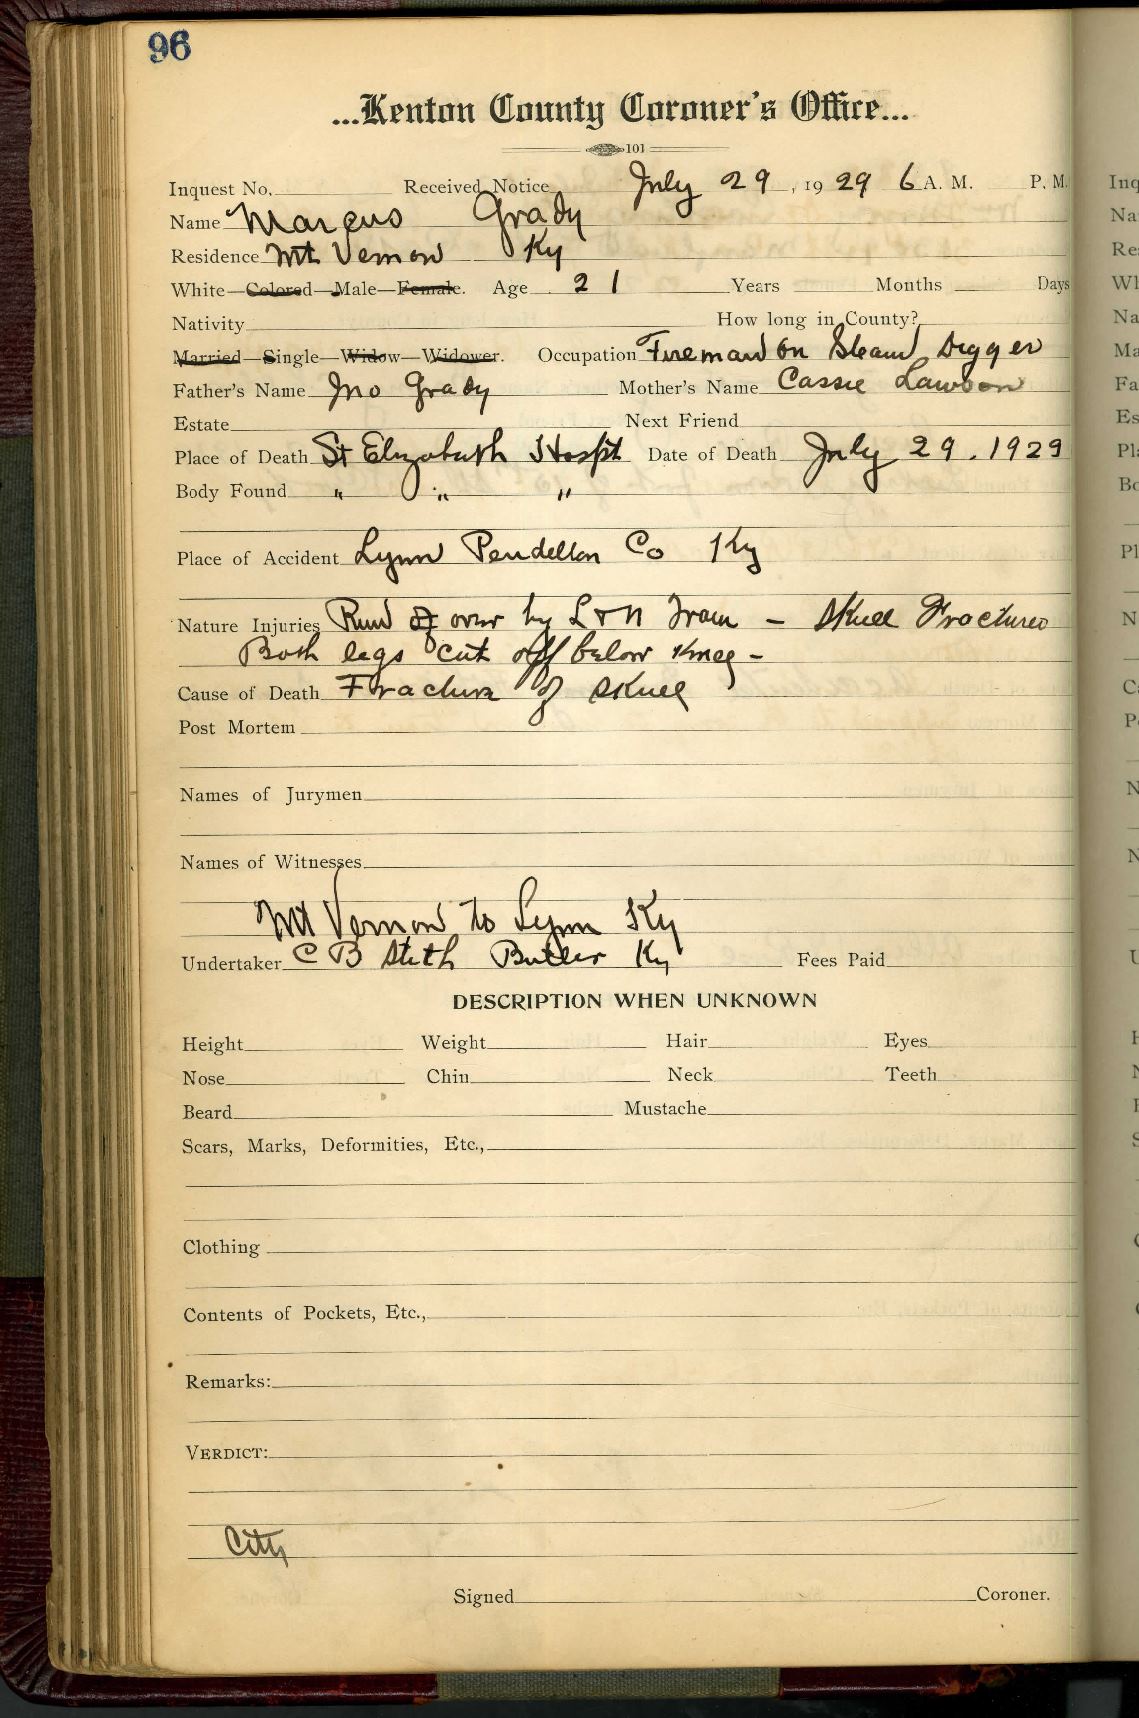 96
...Kenton County Coroner's Office...
101
Inquest No. Received Notice July 29, 1929 6 A. M. P. M.
Name Marcus Grady
Residence Mt Vernon Ky
White—Colored—Male—Female. Age 21 Years Months Days
Nativity How long in County?
Married—Single—Widow—Widower. Occupation Fireman on Steam Digger
Father's Name Jno Grady Mother's Name Cassie Lawson
Estate Next Friend
Place of Death St Elizabeth Hospt Date of Death July 29. 1929
Body Found " " "
Place of Accident Lynn Pendleton Co Ky
Nature Injuries Run of over by L & N Train – Skull Fractured
Both legs cut off below knee –
Cause of Death Fracture of Skull
Post Mortem
Names of Jurymen
Names of Witnesses
Mt Vernon to Lynn Ky
Undertaker C B Stith Butler Ky Fees Paid
DESCRIPTION WHEN UNKNOWN
Height Weight Hair Eyes
Nose Chin Neck Teeth
Beard Mustache
Scars, Marks, Deformities, Etc.,
Clothing
Contents of Pockets, Etc.,
Remarks:
VERDICT:
City
Signed Coroner.